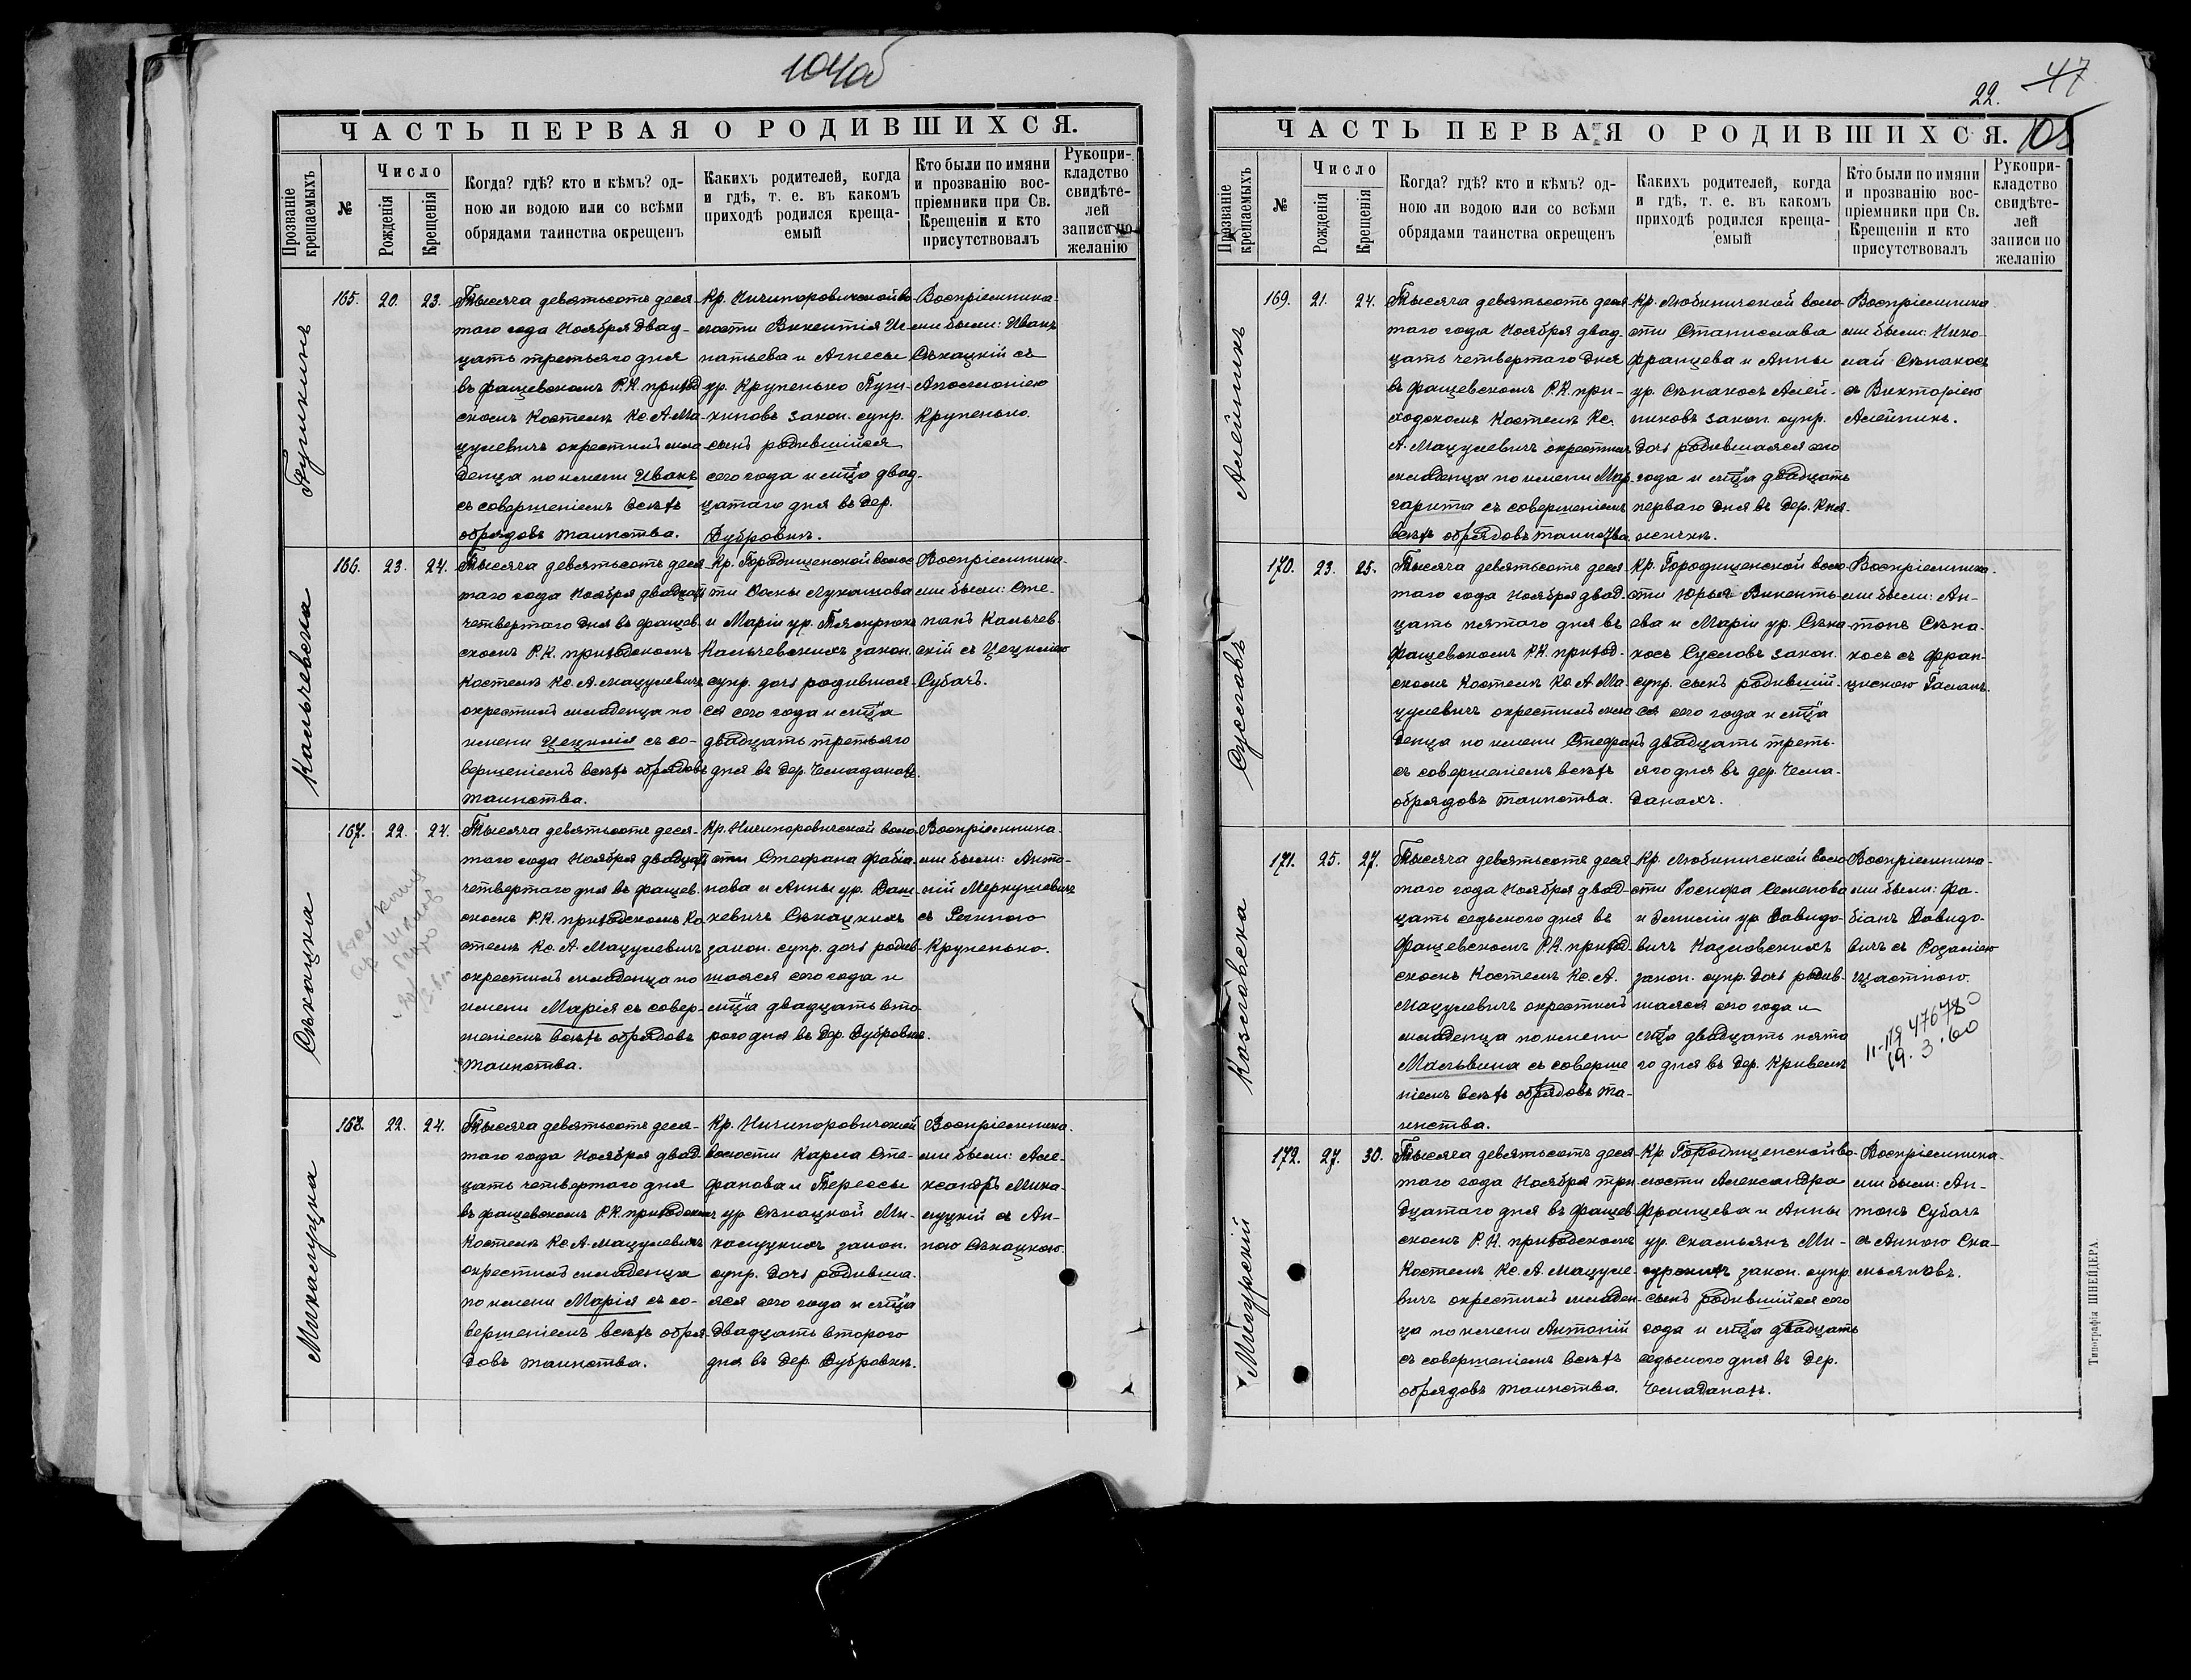 104об
ЧАСТЬ ПЕРВАЯ О РОДИВШИХСЯ.
Прозваніе крещаемыхъ
№
Число
Рожденія
Крещенія
Когда? гдѣ? кто и кѣмъ? од-
ною ли водою или со всѣми
обрядами таинства окрещенъ
Какихъ родителей, когда
и гдѣ, т. е. въ какомъ
приходѣ родился креща-
емый
Кто были по имяни
и прозванію вос-
пріемники при Св.
Крещеніи и кто
присутствовалъ
Рукопри-
кладство
свидѣте-
лей
записи по
желанію
Пушкинъ
165. 20. 23.
Тысяча девятьсотъ деся-
таго года Ноября двад-
цать третьяго дня
въ Фащевскомъ Р.К. приход
скомъ Костелѣ Кс. А. Ма-
цулевичъ окрестилъ мла
денца по имени Иванъ
съ совершеніемъ всѣхъ
обрядовъ таинства.
Кр. Ничипоровичской во-
лости Викентія Иг-
натьева и Агнесы
ур. Крупенько Пуш-
киновъ закон. супр.
сынъ родившійся
сего года и мца двад-
цатаго дня въ дер.
Дубровкѣ.
Воспріемника-
ми были: Иванъ
Сѣкацкій съ
Аполлоніею
Крупенько.
Кольчевска
166. 23. 24.
Тысяча девятьсотъ деся-
таго года Ноября двадцать
четвертаго дня въ Фащев-
скомъ Р.К. приходскомъ
Костелѣ Кс. А. Мацулевичъ
окрестилъ младенца по
имени Цецилія съ со-
вершеніемъ всѣхъ обрядовъ
таинства.
Кр. Городищенской волос
ти Осипы Лукашова
и Маріи ур.
Кольчевскихъ закон.
супр. дочь родившая-
ся сего года и мца
двадцать третьяго
дня въ дер. Чемаданахъ.
Воспріемника-
ми были: Сте-
панъ Кольчев-
скій съ Цециліею
Субачъ.
Сѣкацка
167. 22. 24.
Тысяча девятьсотъ деся-
таго года Ноября двадцать
четвертаго дня въ Фащев-
скомъ Р.К. приходскомъ Ко
стелѣ Кс. А. Мацулевичъ
окрестилъ младенца по
имени Марія съ совер-
шеніемъ всѣхъ обрядовъ
таинства.
Кр. Ничипоровичской воло-
сти Стефана Фабіа-
нова и Анны ур. Вань-
кевичъ Сѣкацкихъ
закон. супр. дочь родив-
шаяся сего года и
мца двадцать вто-
рого дня въ дер. Дубровкѣ.
Воспріемника-
ми были: Анто-
ній Меркулевичъ
съ Региною
Крупенько.
Микалуцка
168. 22. 24.
Тысяча девятьсотъ деся-
таго года Ноября двад-
цать четвертаго дня
въ Фащевскомъ Р.К. приходскомъ
Костелѣ Кс. А. Мацулевичъ
окрестилъ младенца
по имени Марія съ со-
вершеніемъ всѣхъ обря-
довъ таинства.
Кр. Ничипоровичской
волости Карла Сте-
фанова и Терессы
ур. Сѣкацкой Ми-
калуцкихъ закон.
супр. дочь родивша-
яся сего года и мца
двадцать второго
дня въ дер. Дубровкѣ.
Воспріемника-
ми были: Але-
ксандръ Мика-
луцкій съ Ан-
ною Сѣкацкою.
22. 47
105
ЧАСТЬ ПЕРВАЯ О РОДИВШИХСЯ.
Прозваніе крещаемыхъ
№
Число
Рожденія
Крещенія
Когда? гдѣ? кто и кѣмъ? од-
ною ли водою или со всѣми
обрядами таинства окрещенъ
Какихъ родителей, когда
и гдѣ, т. е. въ какомъ
приходѣ родился креща-
емый
Кто были по имяни
и прозванію вос-
пріемники при Св.
Крещеніи и кто
присутствовалъ
Рукопри-
кладство
свидѣте-
лей
записи по
желанію
Алейникъ
169. 21. 24.
Тысяча девятьсотъ деся-
таго года Ноября двад-
цать четвертаго дня
въ Фащевскомъ Р.К. при-
ходскомъ Костелѣ Кс.
А. Мацулевичъ окрестилъ
младенца по имени Мар-
гарита съ совершеніемъ
всѣхъ обрядовъ таинства.
Кр. Любиничской воло-
сти Станислава
Францева и Анны
ур. Сѣнакосъ Алей-
никовъ закон. супр.
дочь родившаяся сего
года и мца двадцать
перваго дня въ дер.
Воспріемника
ми были: Нико-
лай Сѣнакосъ
съ Викторіею
Алейникъ.
Сусловъ
170. 23. 25.
Тысяча девятьсотъ деся-
таго года Ноября двад-
цать пятаго дня въ
Фащевскомъ Р.К. приход-
скомъ Костелѣ Кс. А. Ма-
цулевичъ окрестилъ мла
денца по имени Стефанъ
съ совершеніемъ всѣхъ
обрядовъ таинства.
Кр. Городищенской воло-
сти Юрья Викенть-
ева и Маріи ур. Сѣна-
косъ Сусловъ закон.
супр. сынъ родивший-
ся сего года и мца
двадцать треть-
яго дня въ дер. Чема-
данахъ.
Воспріемника-
ми были: Ан-
тонъ Сѣна-
косъ съ Фран-
цискою
Козловска
171. 25. 27.
Тысяча девятьсотъ деся-
таго года Ноября двад-
цать седьмого дня въ
Фащевскомъ Р.К. приход-
скомъ Костелѣ Кс. А.
Мацулевичъ окрестилъ
младенца по имени
Мальвина съ соверше
ніемъ всѣхъ обрядовъ та-
инства.
Кр. Любиничской воло-
сти Іосифа Семенова
и Эмиліи ур. Давидо-
вичъ Казловскихъ
закон. супр. дочь родив-
шаяся сего года и
мца двадцать пята
го дня въ дер. Кривель
Воспріемника-
ми были: Фа-
біанъ Давидо-
вичъ съ Розаліею
Щастною.
11-119 476780
19.3.60
Мигурскій
172. 27. 30.
Тысяча девятьсотъ деся-
таго года Ноября три-
дцатаго дня въ Фащев-
скомъ Р.К. приходскомъ
Костелѣ Кс. А. Мацуле-
вичъ окрестилъ младен-
ца по имени Антоній
съ совершеніемъ всѣхъ
обрядовъ таинства.
Кр. Городищенской во-
лости Александра
Францева и Анны
ур. Скамьянъ Ми-
гурскихъ закон. супр.
сынъ родившійся сего
года и мца двадцать
седьмого дня въ дер.
Чемаданахъ.
Воспріемника-
ми были: Ан-
тонъ Субачъ
съ Анною Ска-
мьяновъ.
Типографія ШНЕЙДЕРА.